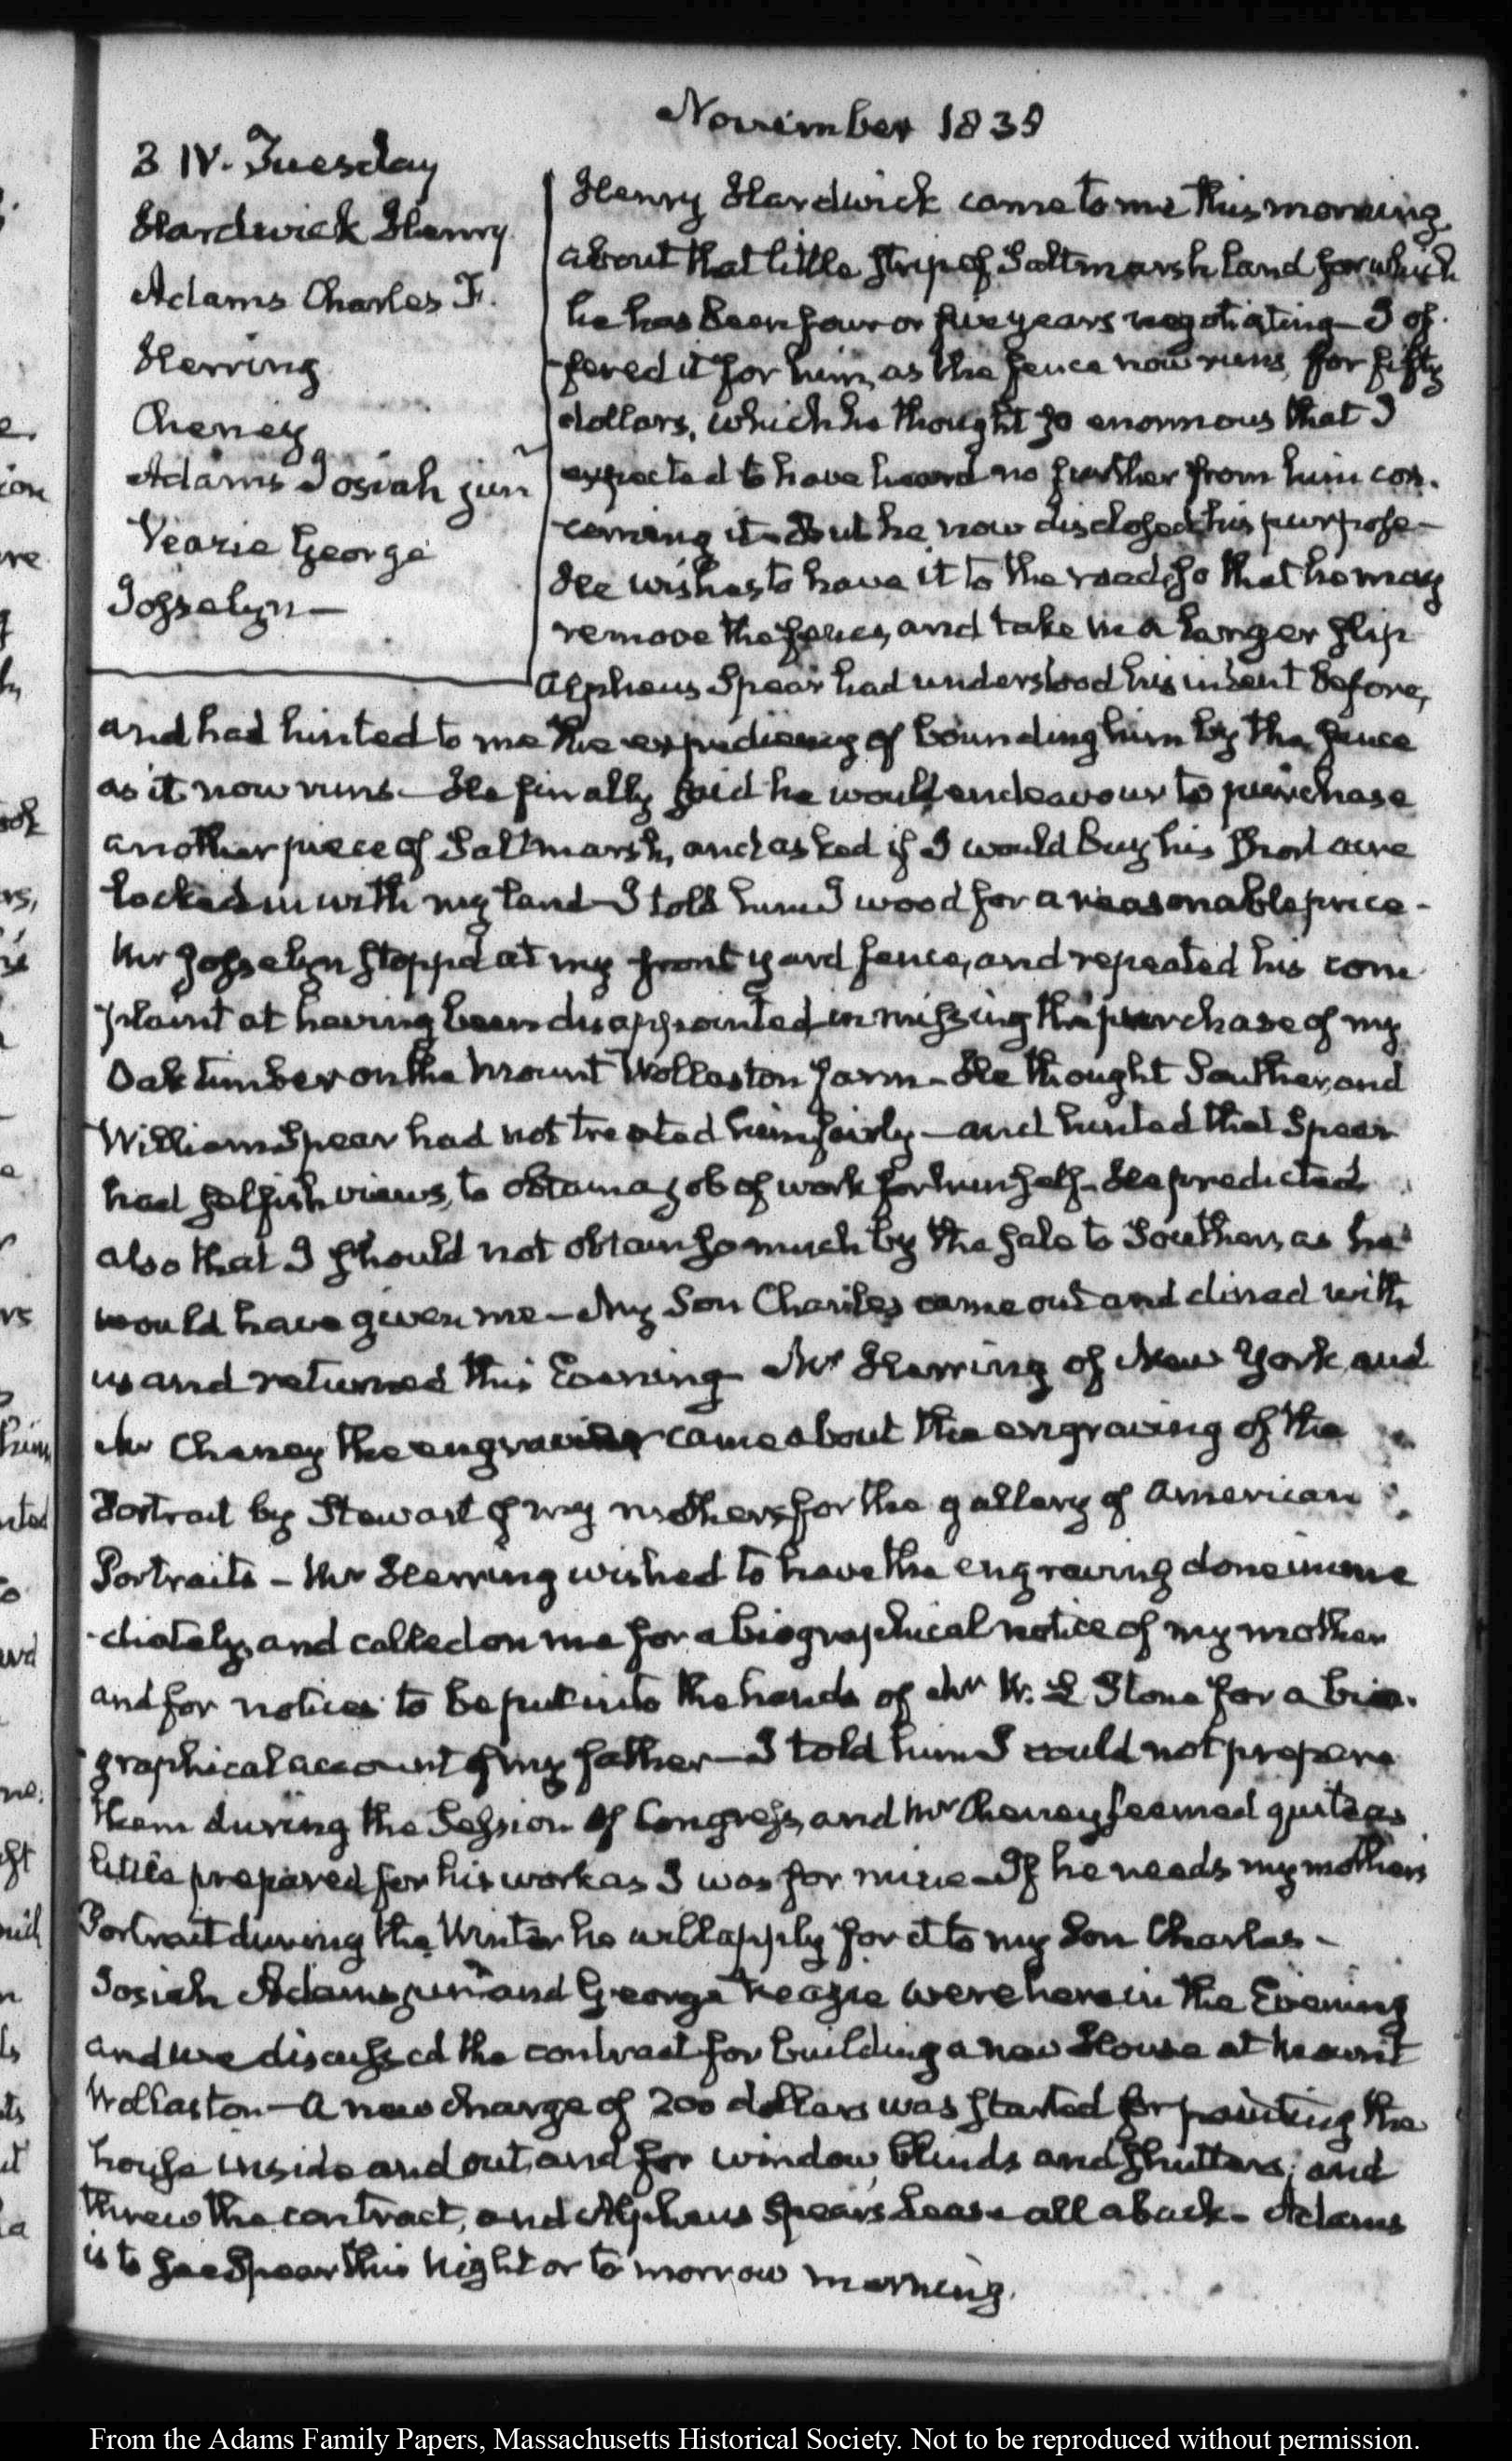 November 1838
3 IV. Tuesday
Hardwick Henry
Adams Charles F.
Herring
Cheney
Adams Josiah jun
Veazie George
Josselyn—
Henry Hardwick came to me this morning
about that little strip of Saltmarsh land for which
he has been four or five years negotiating—I of-
-fered it for him, as the fence now runs, for fifty
dollars, which he thought so enormous that I
expected to have heard no further from him con-
-cerning it—But he now disclosed his purpose—
He wishes to have it to the road, so that he may
remove the fence, and take in a larger slip
Alpheus Spear had understood his intent before,
and had hinted to me the expediency of bounding him by the fence
as it now runs—He finally said he would endeavour to purchase
another piece of Saltmarsh, and asked if I would buy his acre
locked in with my land—I told him I wood for a reasonable price—
Mr Josselyn stopp'd at my front yard fence, and repeated his com
-plaint at having been disappointed in missing the purchase of my
Oak timber on the Mount Wollaston farm—He thought Souther, and
William Spear had not treated him fairly—and hinted that Spear
had selfish views, to obtain a job of work for himself—He predicted
also that I should not obtain so much by the sale to Souther, as he
would have given me—My Son Charles came out and dined with
us and returned this Evening—Mr Herring of New York, and
Mr Cheney the engraver came about the engraving of the
Portrait by Stewart of my mother, for the gallery of American
Portraits—Mr Herring wished to have the engraving done imme
-diately, and called on me for a biographical notice of my mother
and for notices to be put into the hands of Mr W. L Stone for a bio-
-graphical account of my father—I told him I could not prepare
them during the Session of Congress, and Mr Cheney seemed quite as
little prepared for his work as I was for mine—If he needs my mother's
Portrait during the Winter he will apply for it to my Son Charles—
Josiah Adams junr and George Veazie were here in the Evening
and we discussed the contract for building a new House at Mount
Wollaston—A new charge of 200 dollars was started for painting the
house inside and out, and for window blinds and shutters; and
threw the contract, and Alpheus Spear's Lease all aback—Adams
is to see Spear this Night or to morrow morning.
From the Adams Family Papers, Massachusetts Historical Society. Not to be reproduced without permission.